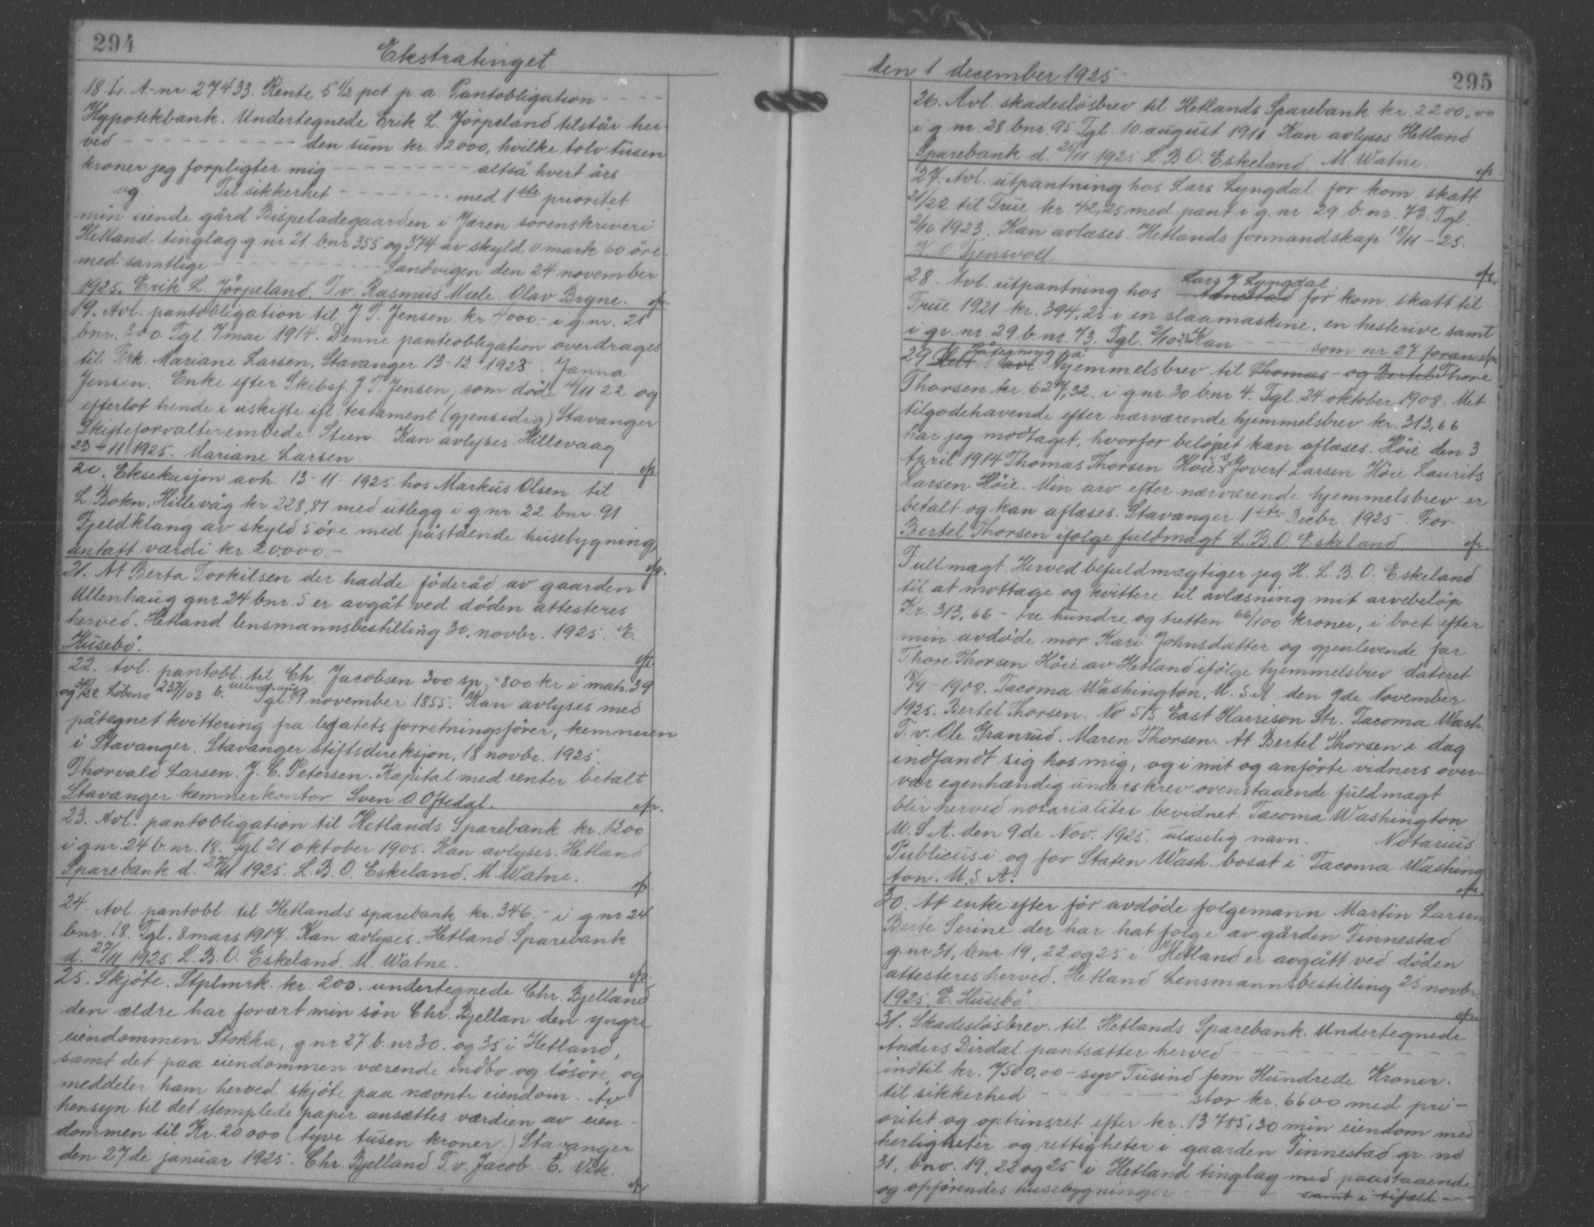 294
Ekstratinget
18. L. A-nr 27433. Rente 5½ pct p a. Pantobligation - - - -
Hypotekbank. Undertegnede Erik L. Jørpeland tilstår her-
ved - - - - - - den sum kr. 12000, hvilke tolv tusen
kroner jeg forpligter mig - - - - - - altså hvert års
og Til sikkerhet - - - - - - med 1ste prioritet
min eiende gård Bispeladegaarden i Jæren sorenskriveri
Hetland tinglag g nr 21 bnr 355 og 374 av skyld 0 mark 60 öre
med samtlige - - - - - - Sandvigen den 24 november
1925. Erik L. Jörpeland. T. v. Rasmus Mæle. Olav Bryne.
19. Avl. pantobligation til J T. Jensen kr 4000,- i g.nr. 21
bnr. 300. Tgl. 7 mai 1914. Denne panteobligation overdrages
til Frk. Mariane Larsen, Stavanger 13-12 1923. Janna
Jensen. Enke efter Skibsf. J. T. Jensen, som døde /11 22 og
efterlot hende i uskifte ifl. testament (gjensidig) Stavanger
Skifteforvalterembede. Steen. Kan avlyses. Hillevaag
23-11 1925. Mariane Larsen
20. Eksekusjon avh. 13-11 1925 hos Markus Olsen til
L. Bokn, Hillevåg kr 228,81 med utlegg i g nr. 22 bnr. 91
Fjeldklang av skyld 5 öre med påstående husebygning,
antatt værdi kr. 20000.-
21. At Berta Torkilsen der hadde föderåd av gaarden
Ullenhaug gnr 24 bnr. 5 er avgåt ved döden attesteres
herved. Hetland lensmannsbestilling 30. novbr. 1925. E.
Husebö.
22. Avl. pantobl. til Ch. Jacobsen 300 sp, - 800 kr i matr. 39
og Löbeno 237/103 b. Tgl. 9 november 1855. Kan avlyses med
påtegnet kvittering fra legatets forretningsförer, kemneren
i Stavanger. Stavanger stiftsdireksjon, 18 novbr. 1925.
Thorvald Larsen. J. C. Petersen. Kapital med renter betalt
Stavanger kemnerkontor Sven O. Oftedal.
23. Avl. pantobligation til Hetlands Sparebank kr. 1300
i gnr. 24 b. nr. 18. Tgl 21 oktober 1905. Kan avlyses. Hetland
Sparebank d. 27/11 1925. L. B. O. Eskeland. M. Watne.
24. Avl. pantobl. til Hetlands sparebank kr. 346,- i g nr 24
bnr. 18. Tgl. 8 mars 1917. Kan avlyses. Hetland Sparebank
d. 27/11 1925. L. B. O. Eskeland. M. Watne.
25. Skjöte. Stplmrk. kr. 200. undertegnede Chr. Bjelland
den ældre har forært min sön Chr. Bjellan den yngre
eiendommen Stokka, g nr 27 b. nr 30. og 35 i Hetland,
samt det paa eiendommen værende indbo og lösöre, og
meddeler ham herved skjöte paa nævnte eiendom. Av
hensyn til det stemplede papir ansættes værdien av eien-
dommen til Kr. 20000 (tyve tusen kroner.) Stavanger
den 27de januar 1925. Chr. Bjelland T. v. Jacob E. Vik.
den 1 december 1925
295
26. Avl. skadeslösbrev til Hetlands Sparebank kr. 2200,00
i g nr. 28 bnr. 95 Tgl. 10 august 1911 Kan avlyses Hetland
Sparebank d. 25/11 1925 L. B. O. Eskeland. M. Watne.
27. Avl. utpantning hos Lars Lyngdal for kom. skatt
21/22 til True kr. 42,25 med pant i g nr. 29 b. nr. 73. Tgl.
2/10 1923. Kan avlæses. Hetlands formandskap 18/11-25.
K. O. Tjensvoll
28. Avl. utpantning hos Lars J. Lyngdal for kom. skatt til
True 1921 kr. 394,25 i en slaamaskine, en hesterive samt
i gr. nr. 29 b. nr. 73. Tgl. 2/10 23. Kan - - - - som nr 27 foran
29. Påtegning på hjemmelsbrev til Thomas og Bertel Thore
Thorsen kr. 627,32. i g nr 30 bnr 4. Tgl. 24 oktober 1908. Mit
tilgodehavende efter nærværende hjemmelsbrev kr. 313,66
har jeg modtaget, hvorfor belöpet kan aflæses. Höie den 3
April 1914 Thomas Thorsen Höie. v. Govert Larsen Höie Laurits
Larsen Höie. Min arv efter nærværende hjemmelsbrev er
betalt og kan aflæses. Stavanger 1ste Decbr. 1925. For
Bertel Thorsen ifolge fuldmagt L. B. O. Eskeland
Fullmagt. Herved befuldmægtiger jeg H. L. B. O. Eskeland
til at mottage og kvittere til avlæsning mit arvebelöp
Kr. 313,66 - tre hundre og tretten 66/100 kroner, i boet efter
min avdöde mor Kari Johnsdatter og gjenlevende far
Thore Thorsen Höie av Hetland ifölge hjemmelsbrev dateret
18/9-1908. Tacoma Washington, U. S. A. den 9de November
1925. Bertel Thorsen. No 515 East Harrison Str. Tacoma Wash.
T. v. Ole Granrud. Maren Thorsen. At Bertel Thorsen i dag
indfandt sig hos mig, og i mit og anförte vidners over-
vær egenhændig underskrev ovenstaaende fuldmagt
blir herved notarialiter bevidnet. Tacoma Washington
U. S. A. den 9de Nov. 1925. ulæselig navn. Notarius
Publicus i og for Staten Wash. bosat i Tacoma Washing
ton. U. S. A.
30. At enke efter för avdöde folgemann Martin Larsen
Berte Serine der har hat folge av gården Finnestad
g. nr 31, bnr 19, 22 og 25 i Hetland er avgått ved döden
attesteres herved. Hetland Lensmannsbestilling 25 novbr
1925. E. Husebö
31. Skadeslösbrev til Hetlands Sparebank. Undertegnede
Anders Dirdal pantsætter herved - - - - - -
indtil kr. 7500,00 - syv Tusind fem Hundrede Kroner.
til sikkerhed - - - - - - stor kr. 6600 med pri-
oritet og optrinsret efter kr. 13785,30 min eiendom med
herligheter og rettigheter i gaarden Finnestad gr. no
31, bno. 19, 22 og 25 i Hetland tinglag med paastaaende
og opförendes husebygninger samt i tilfælde - -